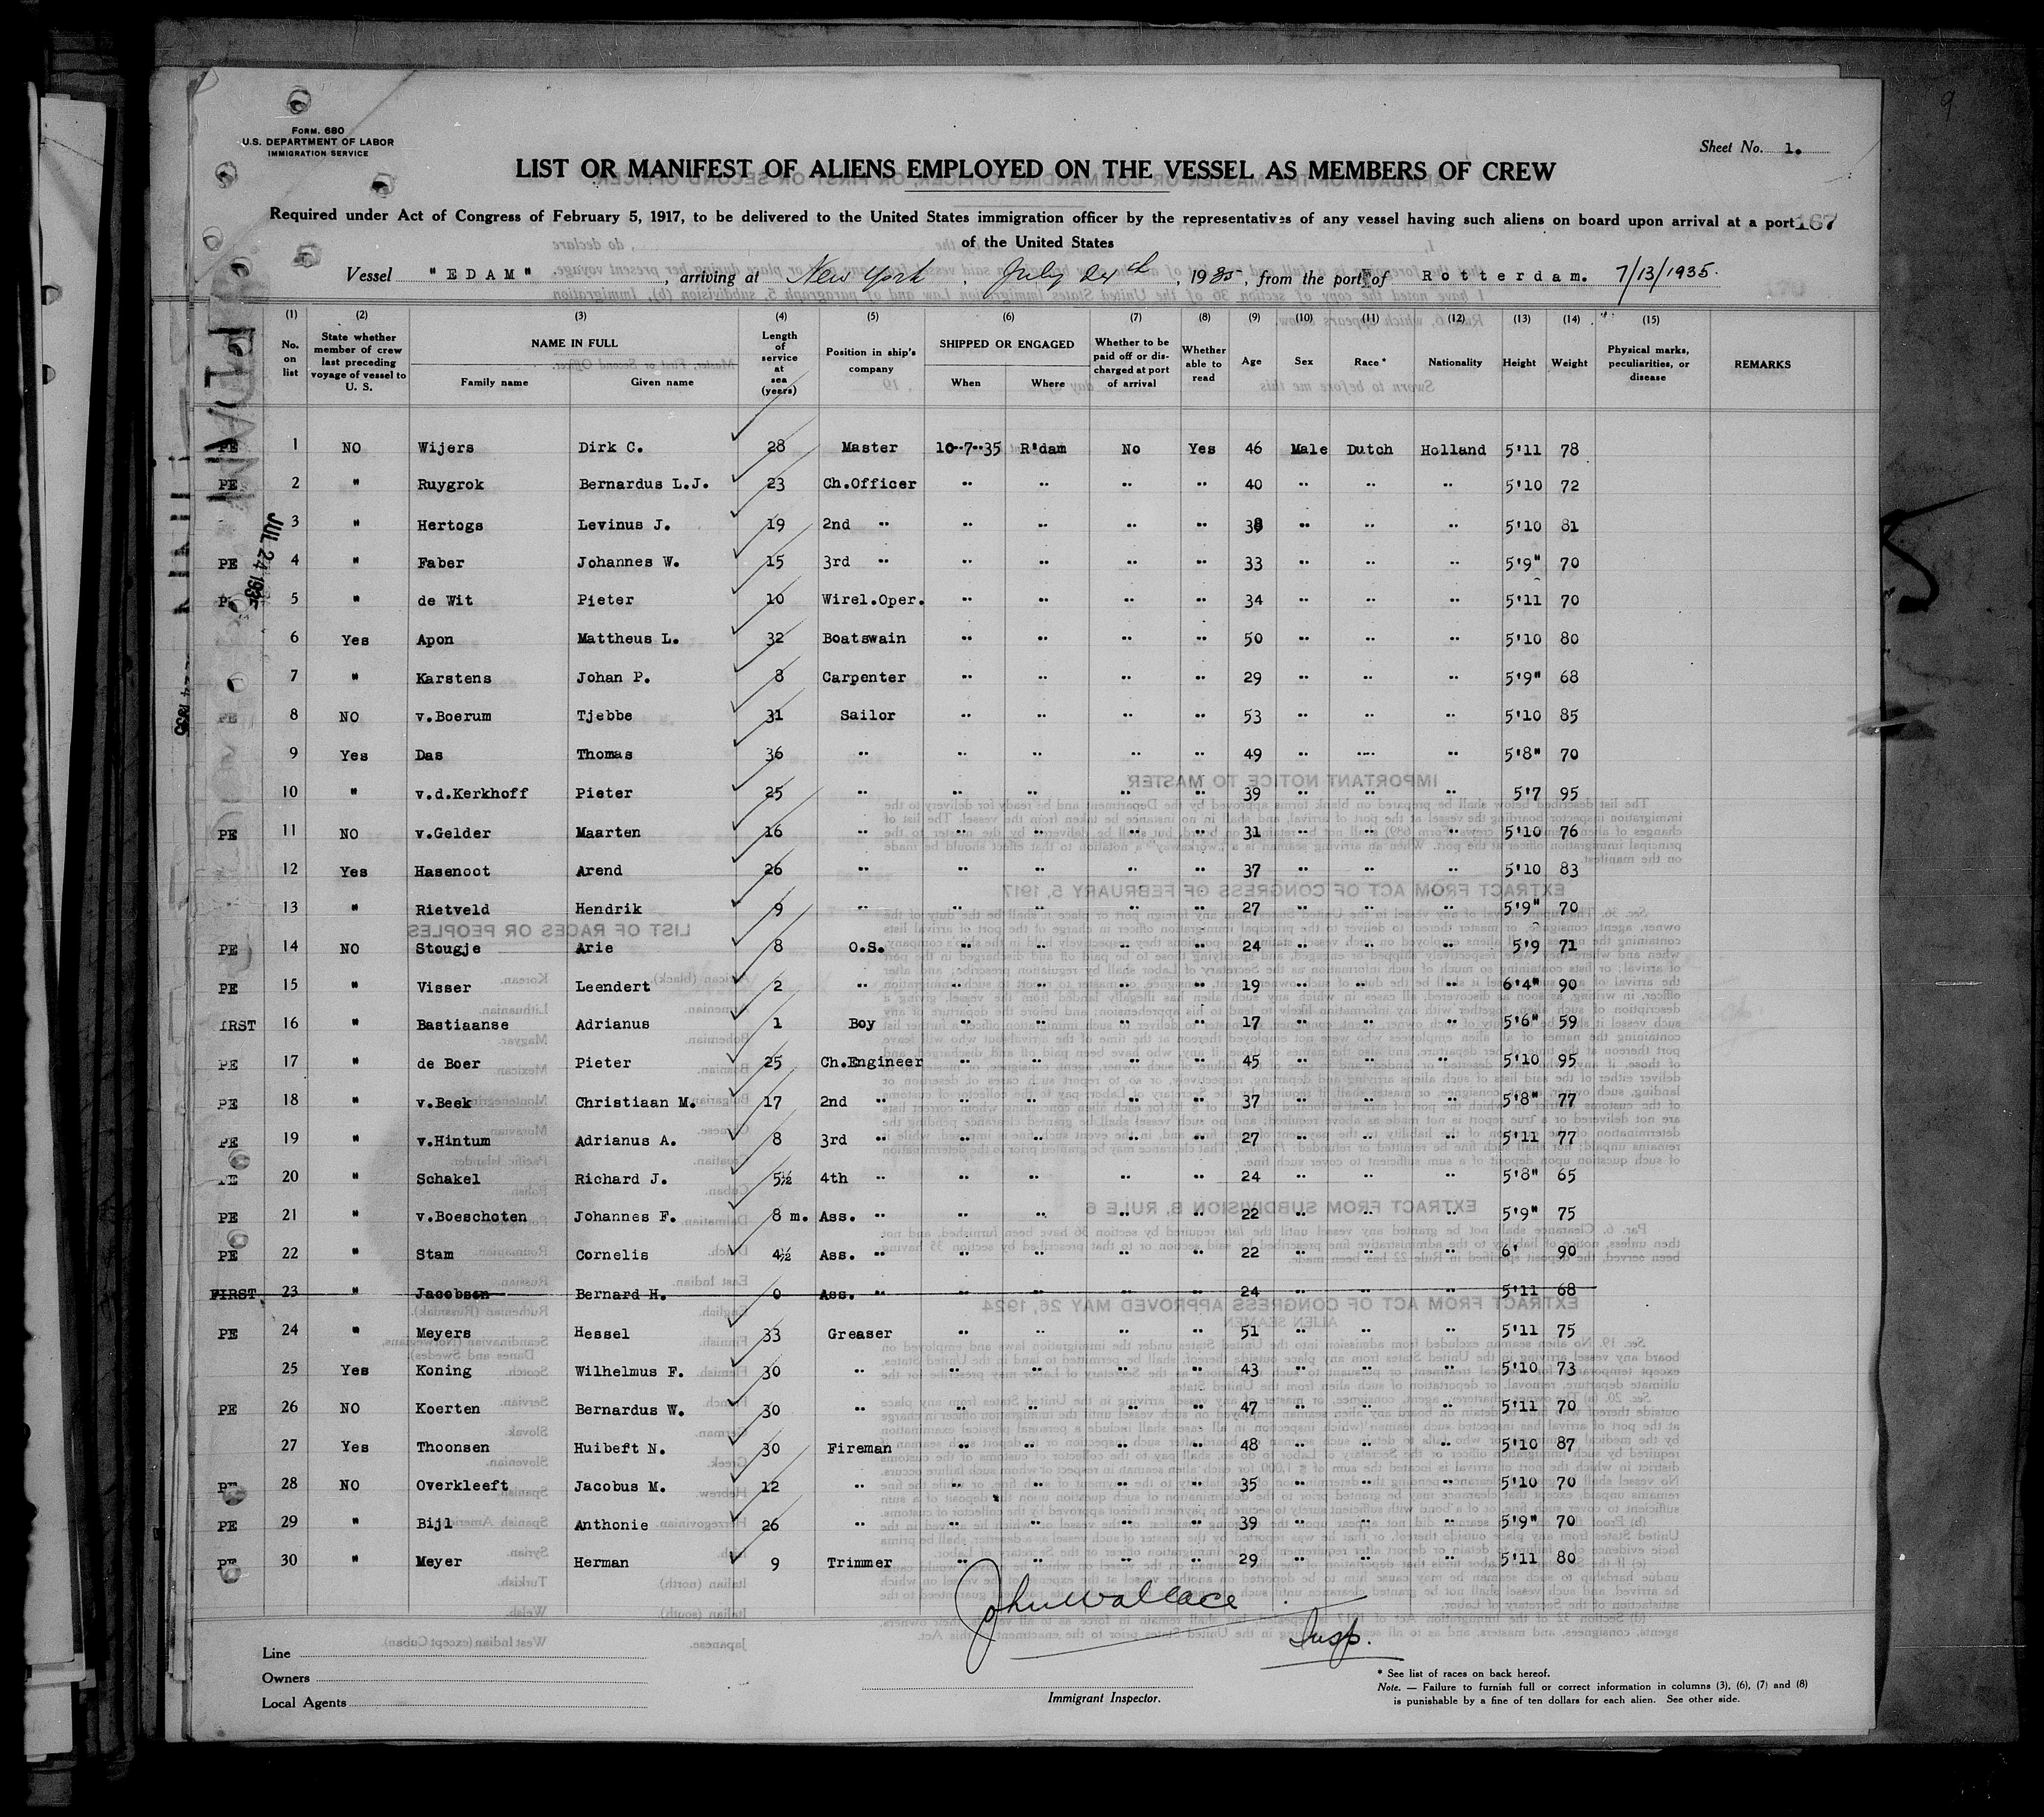 FORM. 680
U.S. DEPARTMENT OF LABOR
IMMIGRATION SERVICE
Sheet No. 1.
LIST OR MANIFEST OF ALIENS EMPLOYED ON THE VESSEL AS MEMBERS OF CREW
Required under Act of Congress of February 5, 1917, to be delivered to the United States immigration officer by the representatives of any vessel having such aliens on board upon arrival at a port
167
of the United States
Vessel "EDAM", arriving at New York, July 24th, 1935, from the port of Rotterdam. 7/13/1935.
(1) (2) (3) (4) (5) (6) (7) (8) (9) (10) (11) (12) (13) (14) (15)
No. on list | State whether member of crew last preceding voyage of vessel to U. S. | NAME IN FULL Family name Given name | Length of service at sea (years) | Position in ship's company | SHIPPED OR ENGAGED When Where | Whether to be paid off or discharged at port of arrival | Whether able to read | Age | Sex | Race * | Nationality | Height | Weight | Physical marks, peculiarities, or disease | REMARKS
PE 1 NO Wijers Dirk C. 28 Master 10-7-35 R'dam No Yes 46 Male Dutch Holland 5'11 78
PE 2 " Ruygrok Bernardus L.J. 23 Ch.Officer " " " " 40 " " " 5'10 72
3 " Hertogs Levinus J. 19 2nd " " " " " 38 " " " 5'10 81
PE 4 " Faber Johannes W. 15 3rd " " " " " 33 " " " 5'9" 70
5 " de Wit Pieter 10 Wirel.Oper. " " " " 34 " " " 5'11 70
6 Yes Apon Mattheus L. 32 Boatswain " " " " 50 " " " 5'10 80
7 " Karstens Johan P. 8 Carpenter " " " " 29 " " " 5'9" 68
PE 8 NO v.Boerum Tjebbe 31 Sailor " " " " 53 " " " 5'10 85
9 Yes Das Thomas 36 " " " " " 49 " " " 5'8" 70
10 " v.d.Kerkhoff Pieter 25 " " " " " 39 " " " 5'7 95
PE 11 NO v.Gelder Maarten 16 " " " " " 31 " " " 5'10 76
12 Yes Hasenoot Arend 26 " " " " " 37 " " " 5'10 83
13 " Rietveld Hendrik 9 " " " " " 27 " " " 5'9" 70
PE 14 NO Stougje Arie 8 O.S. " " " " 24 " " " 5'9 71
PE 15 " Visser Leendert 2 " " " " " 19 " " " 6'4" 90
IRST 16 " Bastiaanse Adrianus 1 Boy " " " " 17 " " " 5'6" 59
PE 17 " de Boer Pieter 25 Ch.Engineer " " " " 45 " " " 5'10 95
PE 18 " v.Beek Christiaan M. 17 2nd " " " " " 37 " " " 5'8" 77
PE 19 " v.Hintum Adrianus A. 8 3rd " " " " " 27 " " " 5'11 77
PE 20 " Schakel Richard J. 5½ 4th " " " " " 24 " " " 5'8" 65
PE 21 " v.Boeschoten Johannes F. 8 m. Ass. " " " " " 22 " " " 5'9" 75
PE 22 " Stam Cornelis 4½ Ass. " " " " " 22 " " " 6' 90
FIRST 23 " Jacobsen Bernard H. 0 Ass. " " " " " 24 " " " 5'11 68
PE 24 " Meyers Hessel 33 Greaser " " " " 51 " " " 5'11 75
25 Yes Koning Wilhelmus F. 30 " " " " " 43 " " " 5'10 73
PE 26 NO Koerten Bernardus W. 30 " " " " " 47 " " " 5'11 70
27 Yes Thoonsen Huibeft N. 30 Fireman " " " " 48 " " " 5'10 87
PE 28 NO Overkleeft Jacobus M. 12 " " " " " 35 " " " 5'10 70
PE 29 " Bijl Anthonie 26 " " " " " 39 " " " 5'9" 70
PE 30 " Meyer Herman 9 Trimmer " " " " 29 " " " 5'11 80
JUL 24 1935
John Wallace
Insp.
Line
Owners
Local Agents
Immigrant Inspector.
* See list of races on back hereof.
Note. — Failure to furnish full or correct information in columns (3), (6), (7) and (8)
is punishable by a fine of ten dollars for each alien. See other side.